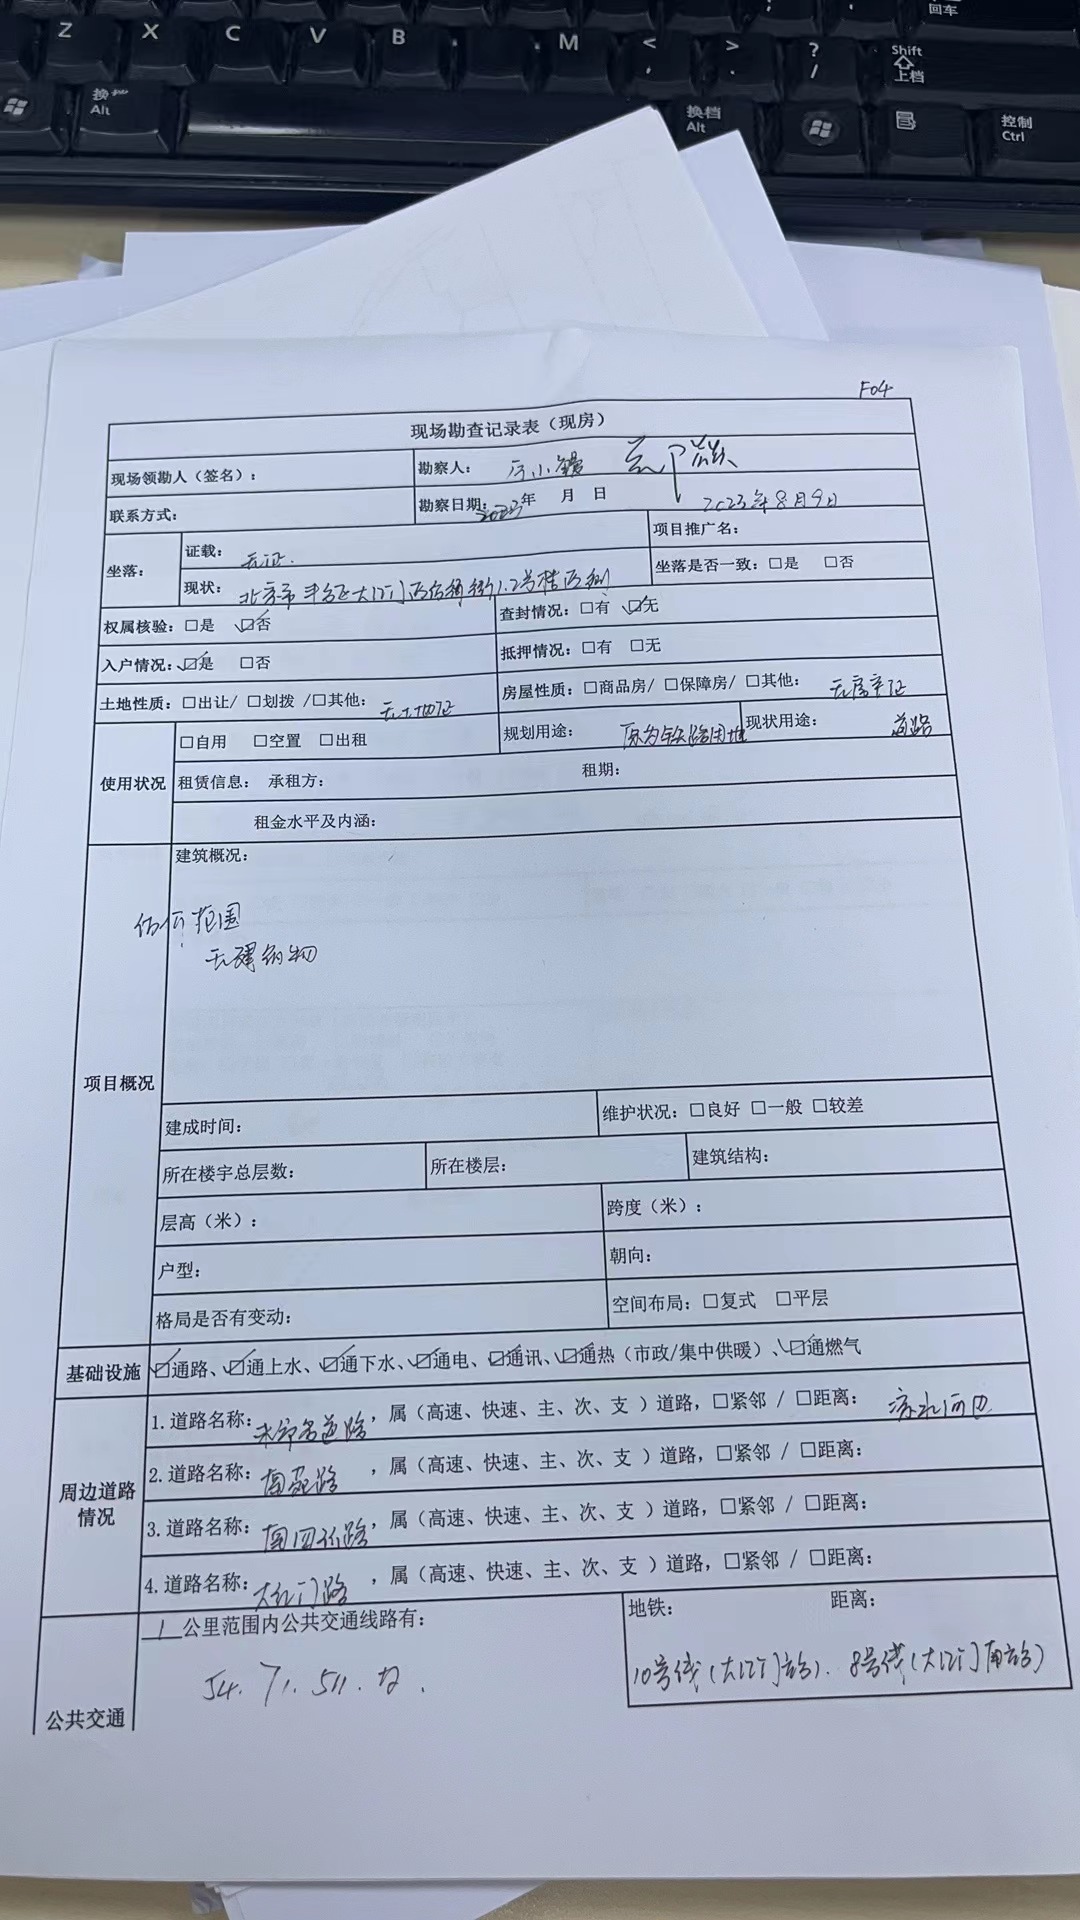 Z X C V B M < , > . ? / Shift 上档 回车
换档 Alt 换档 Alt 控制 Ctrl
F04
现场勘查记录表（现房）
现场领勘人（签名）： 勘察人：
联系方式： 勘察日期：2023年 月 日 2023年8月9日
坐落： 证载：无证. 项目推广名：
现状：北京市丰台区大红门西 街1.2号楼西侧 坐落是否一致：□是 □否
权属核验：□是 ☑否 查封情况：□有 ☑无
入户情况：☑是 □否 抵押情况：□有 □无
土地性质：□出让/ □划拨 /□其他：无土地证 房屋性质：□商品房/ □保障房/ □其他：无房产证
使用状况 □自用 □空置 □出租 规划用途：原为铁路用地 现状用途：道路
租赁信息： 承租方： 租期：
租金水平及内涵：
项目概况 建筑概况：
估价范围
无建筑物
建成时间： 维护状况：□良好 □一般 □较差
所在楼宇总层数： 所在楼层： 建筑结构：
层高（米）： 跨度（米）：
户型： 朝向：
格局是否有变动： 空间布局：□复式 □平层
基础设施 ☑通路、☑通上水、☑通下水、☑通电、☑通讯、☑通热（市政/集中供暖）、☑通燃气
周边道路情况 1.道路名称：未命名道路，属（高速、快速、主、次、支 ）道路，□紧邻 / □距离：凉水河
2.道路名称：南苑路 ，属（高速、快速、主、次、支 ）道路，□紧邻 / □距离：
3.道路名称：南四环路，属（高速、快速、主、次、支 ）道路，□紧邻 / □距离：
4.道路名称：大红门路 ，属（高速、快速、主、次、支 ）道路，□紧邻 / □距离：
公共交通 1 公里范围内公共交通线路有： 地铁： 距离：
54. 71. 511. 10号线（大红门站）. 8号线（大红门南站）